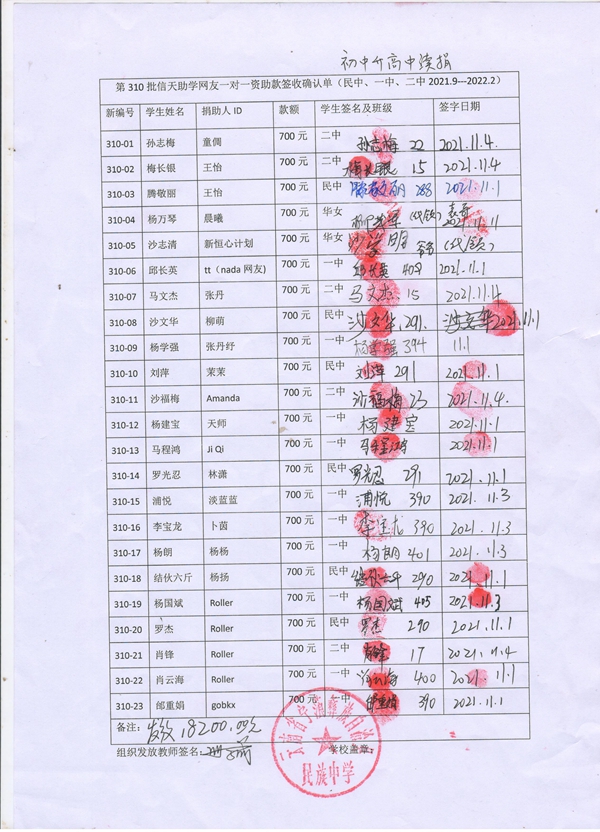 初中升高中续捐
第 310 批信天助学网友一对一资助款签收确认单（民中、一中、二中 2021.9---2022.2）
新编号 学生姓名 捐助人 ID 款额 学生签名及班级 签字日期
310-01 孙志梅 童倜 700 元 二中 孙志梅 22 2021.11.4.
310-02 梅长银 王怡 700 元 二中 梅长银 15 2021.11.4
310-03 腾敬丽 王怡 700 元 民中 288 2021.11.1
310-04 杨万琴 晨曦 700 元 华女 (代领) 2021.11.11
310-05 沙志清 新恒心计划 700 元 华女 沙学明 (代领)
310-06 邱长英 tt（nada 网友) 700 元 一中 邱长英 408 2021.11.1
310-07 马文杰 张丹 700 元 二中 马文杰 15 2021.11.4
310-08 沙文华 柳萌 700 元 民中 沙文华 291. 沙文华 2021.11.1
310-09 杨学强 张丹纾 700 元 一中 杨学强 394 11.1
310-10 刘萍 茉茉 700 元 民中 刘萍 291 2021.11.1
310-11 沙福梅 Amanda 700 元 二中 沙福梅 23 2021.11.4.
310-12 杨建宝 天师 700 元 一中 杨建宝 2021.11.1
310-13 马程鸿 Ji Qi 700 元 一中 2021.11.1
310-14 罗光忍 林潇 700 元 民中 罗光忍 291 2021.11.1
310-15 浦悦 淡蓝蓝 700 元 一中 浦悦 390 2021.11.3
310-16 李宝龙 卜茵 700 元 一中 李宝龙 390 2021.11.3
310-17 杨朗 杨杨 700 元 一中 杨朗 401 2021.11.3
310-18 结伙六斤 杨扬 700 元 民中 结伙六斤 290 2021.11.1
310-19 杨国斌 Roller 700 元 一中 杨国斌 405 2021.11.3
310-20 罗杰 Roller 700 元 民中 罗杰 290 2021.11.1
310-21 肖锋 Roller 700 元 二中 肖锋 17 2021.11.4
310-22 肖云海 Roller 700 元 一中 肖云海 400 2021.11.1
310-23 邰重娟 gobkx 700 元 一中 390 2021.11.1
备注： 发放18200.00元
组织发放教师签名： 学校盖章：
云南省宁蒗彝族自治
民族中学